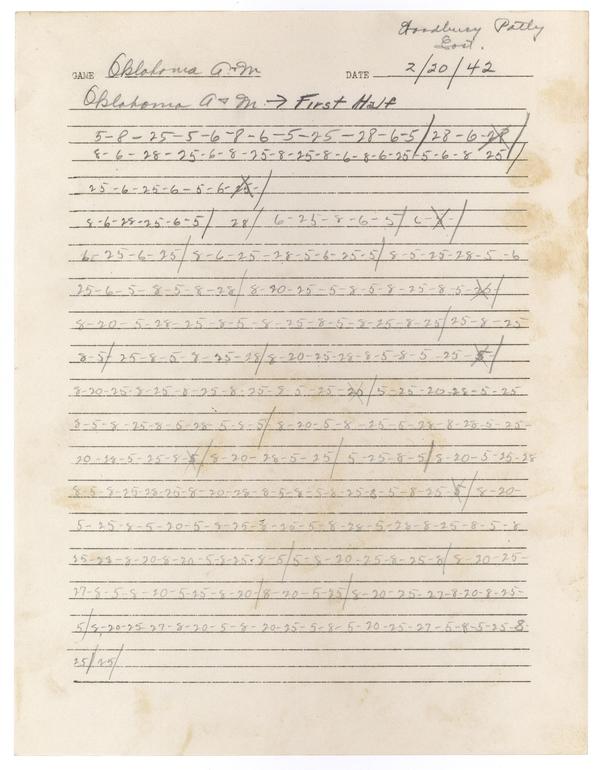 Woodbury Patty
East.
GAME Oklahoma A&M DATE 2/20/42
Oklahoma A & M → First Half
5-8-25-5-6-8-6-5-25-28-6-5/28-6-28
8-6-28-25-6-8-25-8-25-8-6-8-6-25-5-6-8 25/
25-6-25-6-5-6-25-/
8-6-28-25-6-5/ 28/ 6-25-8-6-5/ 6-
6-25-6-25/8-6-25-28-5-6-25-5/8-5-25-28-5-6
25-6-5-8-5-8-28/8-20-25-5-8-5-8-25-8-5-25/
8-20-5-28-25-8-5-8-25-8-5-8-25-8-25/25-8-25
8-5/25-8-5-8-25-28/8-20-25-28-8-5-8-5-25-5/
8-20-25-8-25-8-25-8-25-8-5-25-20/5-25-20-28-5-25
8-5-8-25-8-5-28-5-8-5/8-20-5-8-25-5-28-8-28-5-25-
20-28-5-25-8-5/8-20-28-5-25/5-25-8-5/8-20-5-25-28
8-5-8-25-28-25-8-20-28-8-5-8-5-8-25-8-5-8-25 5/8-20-
5-25-8-5-20-5-8-25-8-25-5-8-28-5-28-8-25-8-5-8
25-28-8-20-8-20-5-8-25-8-5/5-8-20-25-8-25-8/8-20-25-
27-8-5-8-20-5-25-8-20/8-20-25/8-20-25-27-8-20-8-25-
5/8-20-25-27-8-20-5-8-20-25-5-8-5-20-25-27-5-8-5-25-8
25/25/